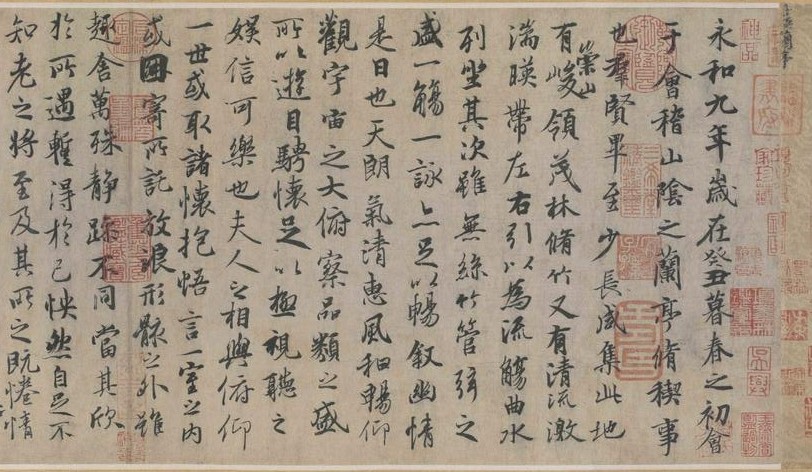 永和九年歲在癸丑暮春之初會
于會稽山陰之蘭亭脩稧事
也羣賢畢至少長咸集此地
有崇山峻領茂林脩竹又有清流激
湍暎帶左右引以為流觴曲水
列坐其次雖無絲竹管弦之
盛一觴一詠亦足以暢敘幽情
是日也天朗氣清惠風和暢仰
觀宇宙之大俯察品類之盛
所以遊目騁懷足以極視聽之
娛信可樂也夫人之相與俯仰
一世或取諸懷抱悟言一室之內
或因寄所託放浪形骸之外雖
趣舍萬殊靜躁不同當其欣
於所遇暫得於己怏然自足不
知老之將至及其所之既惓情
神品